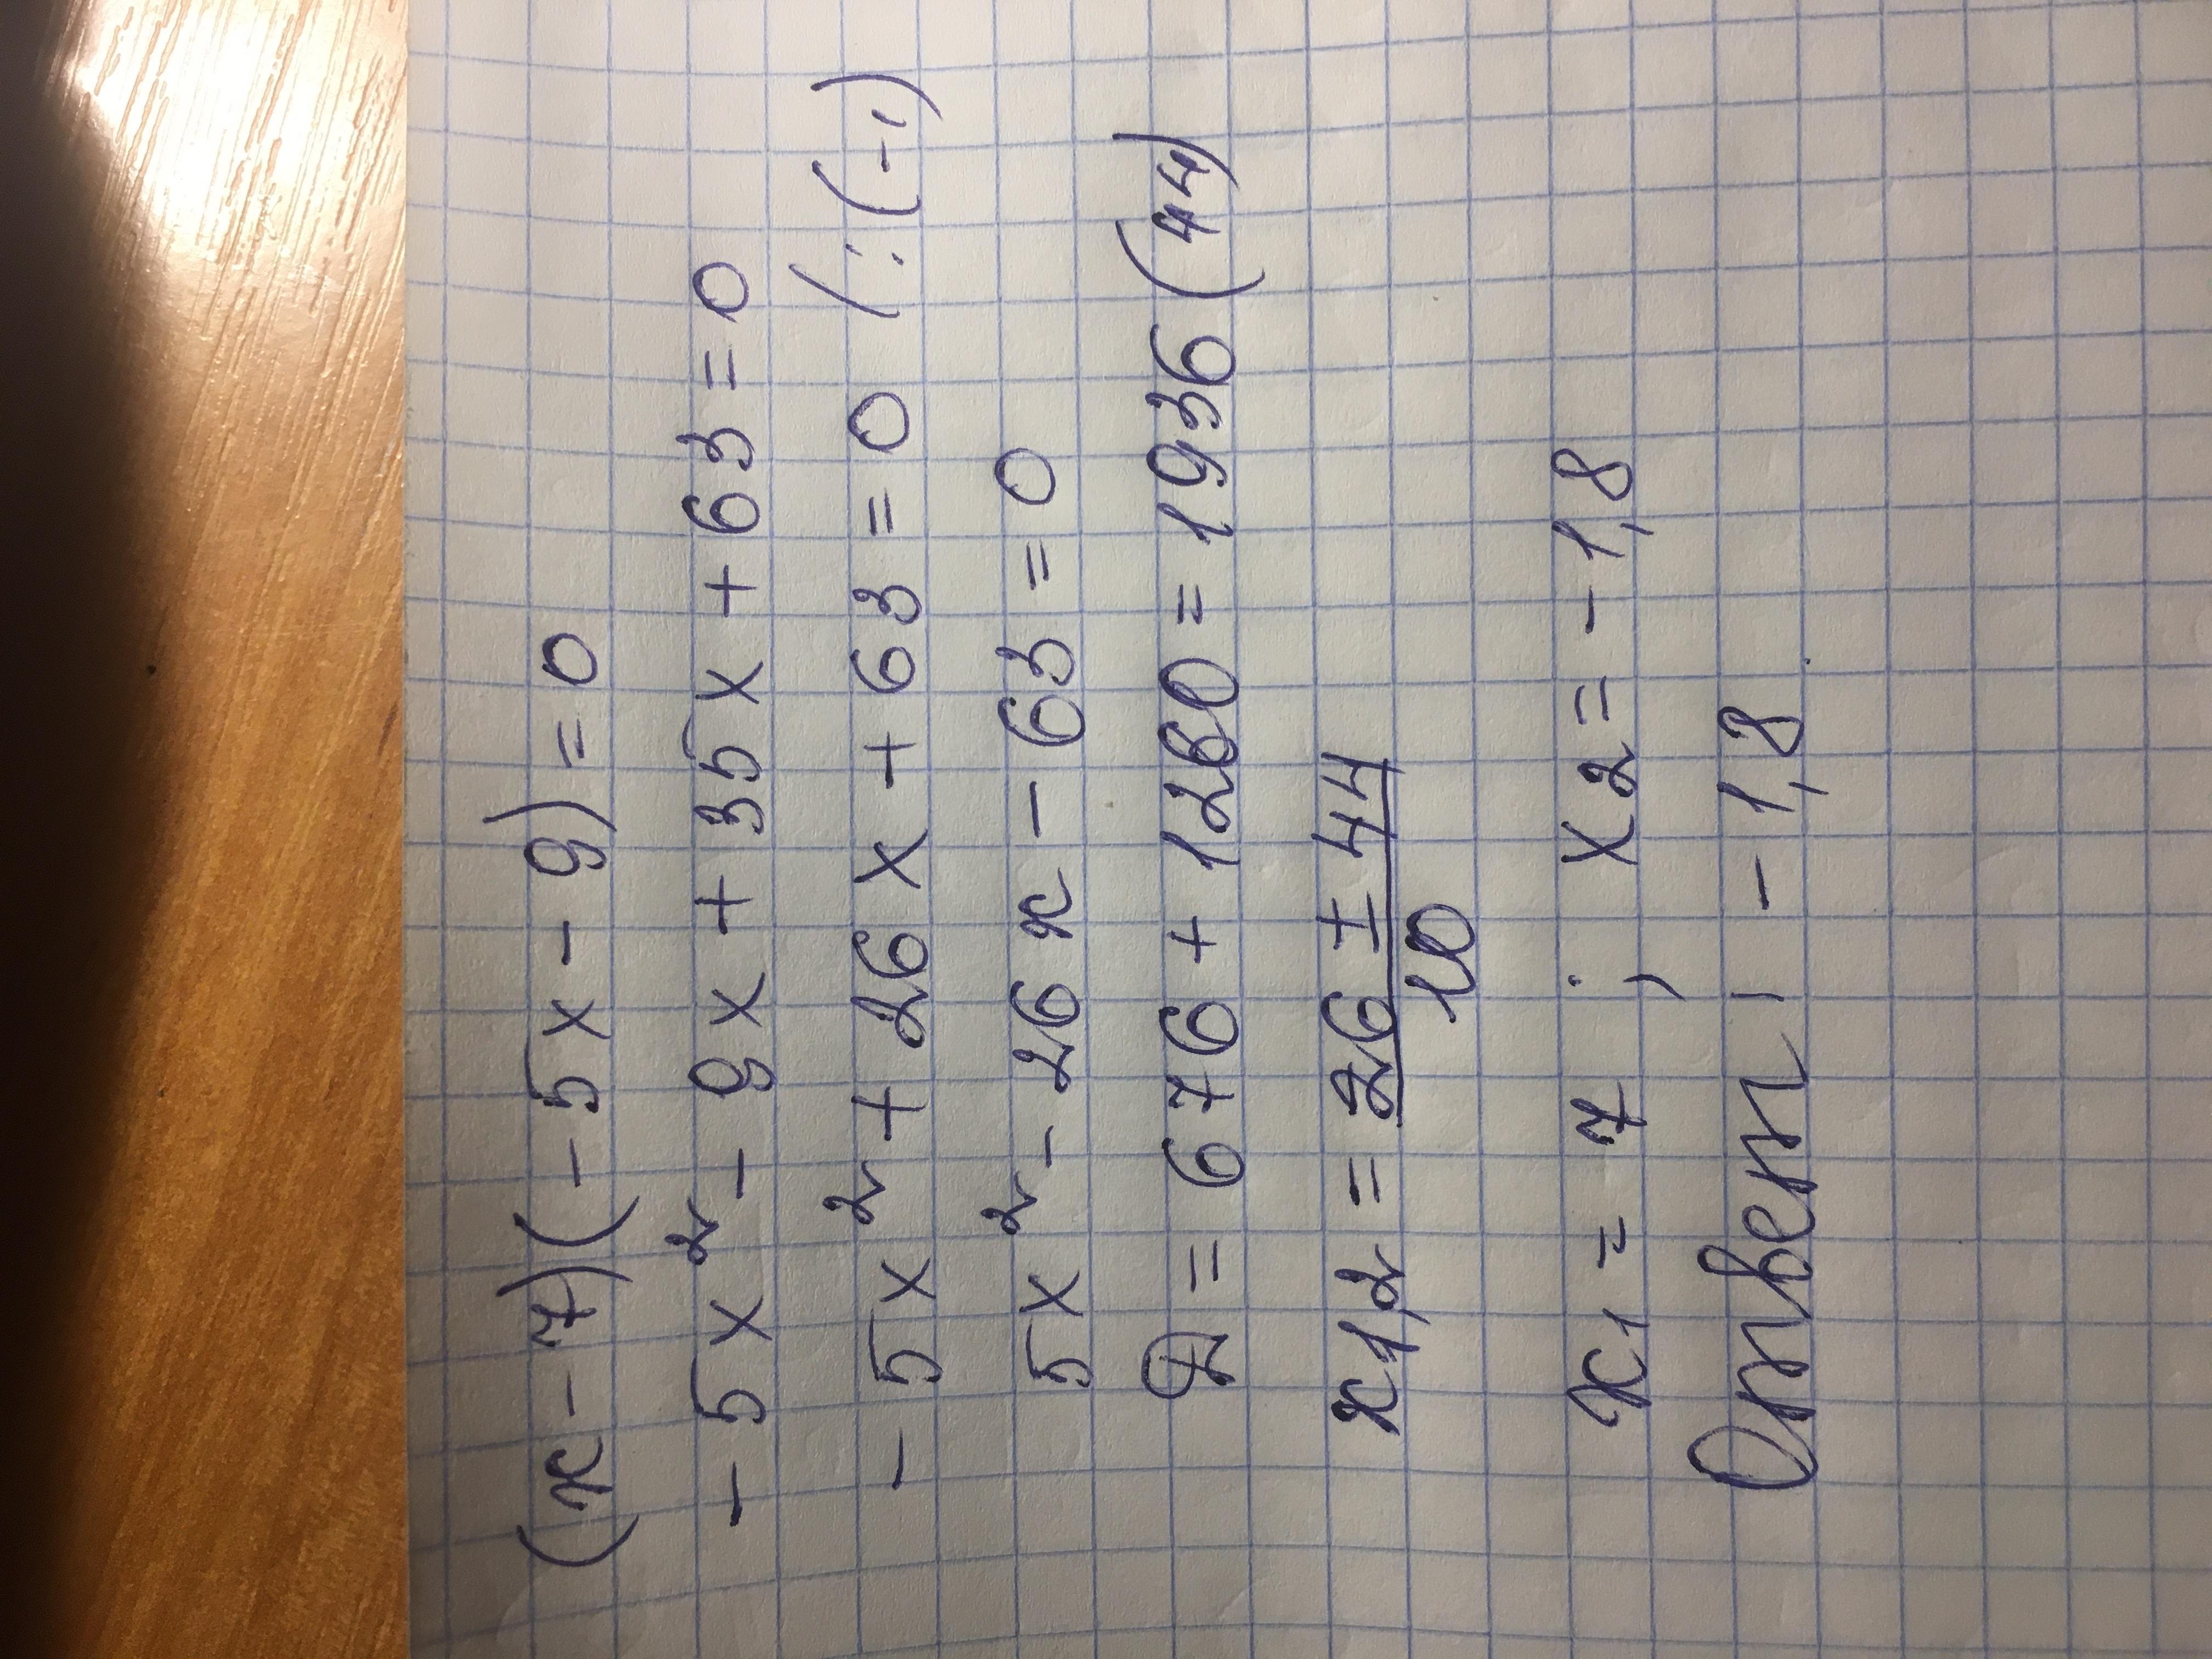 (x-7)(-5x-9)=0
-5x²-9x+35x+63=0
-5x²+26x+63=0 /:(-1)
5x²-26x-63=0
D=676+1260=1936(44)
x1,2=26±44
10
x1=7; x2=-1,8
Ответ, -1,8